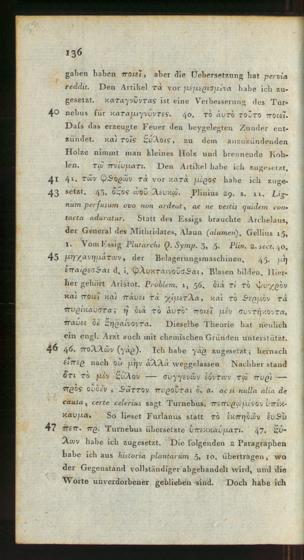 136
gaben haben ποιεῖ, aber die Uebersetzung hat pervia
reddit. Den Artikel τὰ vor μεμερισμένα habe ich zu-
gesetzt. καταγοῦντας ist eine Verbesserung des Tur-
40 nebus für καταμιγνύντες. 40. τὸ αὐτὸ τοῦτο ποιεῖ.
Dafs das erzeugte Feuer den beygelegten Zunder ent-
zündet. καὶ τοῖς ξύλοις, zu dem anzuzündenden
Holze nimmt man kleines Holz und brennende Koh-
len. τῷ πνίγματι. Den Artikel habe ich zugesetzt.
41 41. τῶν φθορῶν τὰ vor κατὰ μέρος habe ich zuge-
43 setzt. 43. ὄξος ᾠοῦ λευκῷ. Plinius 29. s. 11. Lig-
num perfusum ovo non ardent, ac ne vestis quidem con-
tacta aduratur. Statt des Essigs brauchte Archelaus,
der General des Mithridates, Alaun (alumen), Gellius 15,
1. Vom Essig Plutarchi Q. Symp. 3, 5. Plin. 2. sect. 40,
45 μηχανημάτων, der Belagerungsmaschinen. 45. μὴ
ἐπαίρεσθαι d. i. φλυκταινοῦσθαι, Blasen bilden. Hier-
her gehört Aristot. Problem. 1, 56. διὰ τί τὸ ψυχρὸν
καὶ ποιεῖ καὶ παύει τὰ χίμετλα, καὶ τὸ θερμὸν τὰ
πυρίκαυστα; ἢ διὰ τὸ αὐτό· ποιεῖ μὲν συντήκοντα,
παύει δὲ ξηραίνοντα. Dieselbe Theorie hat neulich
ein engl. Arzt auch mit chemischen Gründen unterstützt.
46 46. πολλῶν (γὰρ). Ich habe γὰρ zugesetzt; hernach
εἴπερ nach οὐ μὴν ἀλλὰ weggelassen Nachher stand
ὅτι τὸ μὲν ξύλον — συγγενῶν ὄντων τῷ πυρὶ —
πρὸς οὐδὲν, θᾶττον πυροῦται ὃ. α. ac si nulla alia de
causa, certe celerius sagt Turnebus, πεπυρωμένον ὑπέκ-
καυμα. So lieset Furlanus statt τὸ ἐκπηνῶν εὐθὺ
47 πεπ. πρ. Turnebus übersetzte ὑπεκκαύματι. 47. ξύ-
λων habe ich zugesetzt. Die folgenden 2 Paragraphen
habe ich aus historia plantarum 5, 10, übertragen, wo
der Gegenstand vollständiger abgehandelt wird, und die
Worte unverdorbener geblieben sind. Doch habe ich